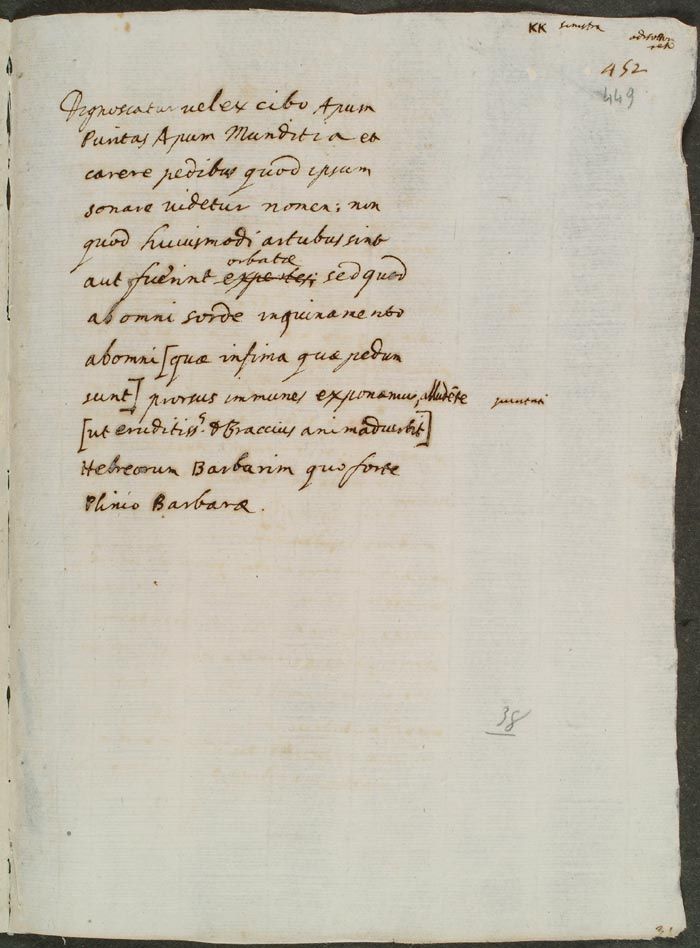 KK sinistra
452
449
Dignoscatur uel ex cibo Apum
Puritas Apum Munditia et
carere pedibus quod ipsum
sonare uidetur nomen; non
quod huiusmodi artubus sint
orbatæ
aut fuerint expertes; sed quod
ab omni sorde inquinamento
ab omni [quæ infima quæ pedum
sunt] prorsus immunes exponamus, alludẽte
[ut eruditiss.s D Braccius animaduertit]
Hebreorum Barbarim quo forte
Plinio Barbaræ.
puritati
38